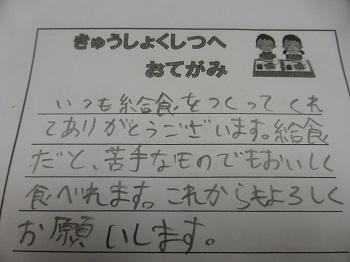 きゅうしょくしつへ
おてがみ
いつも給食をつくってくれ
てありがとうございます。給食
だと、苦手なものでもおいしく
食べれます。これからもよろしく
お願いします。